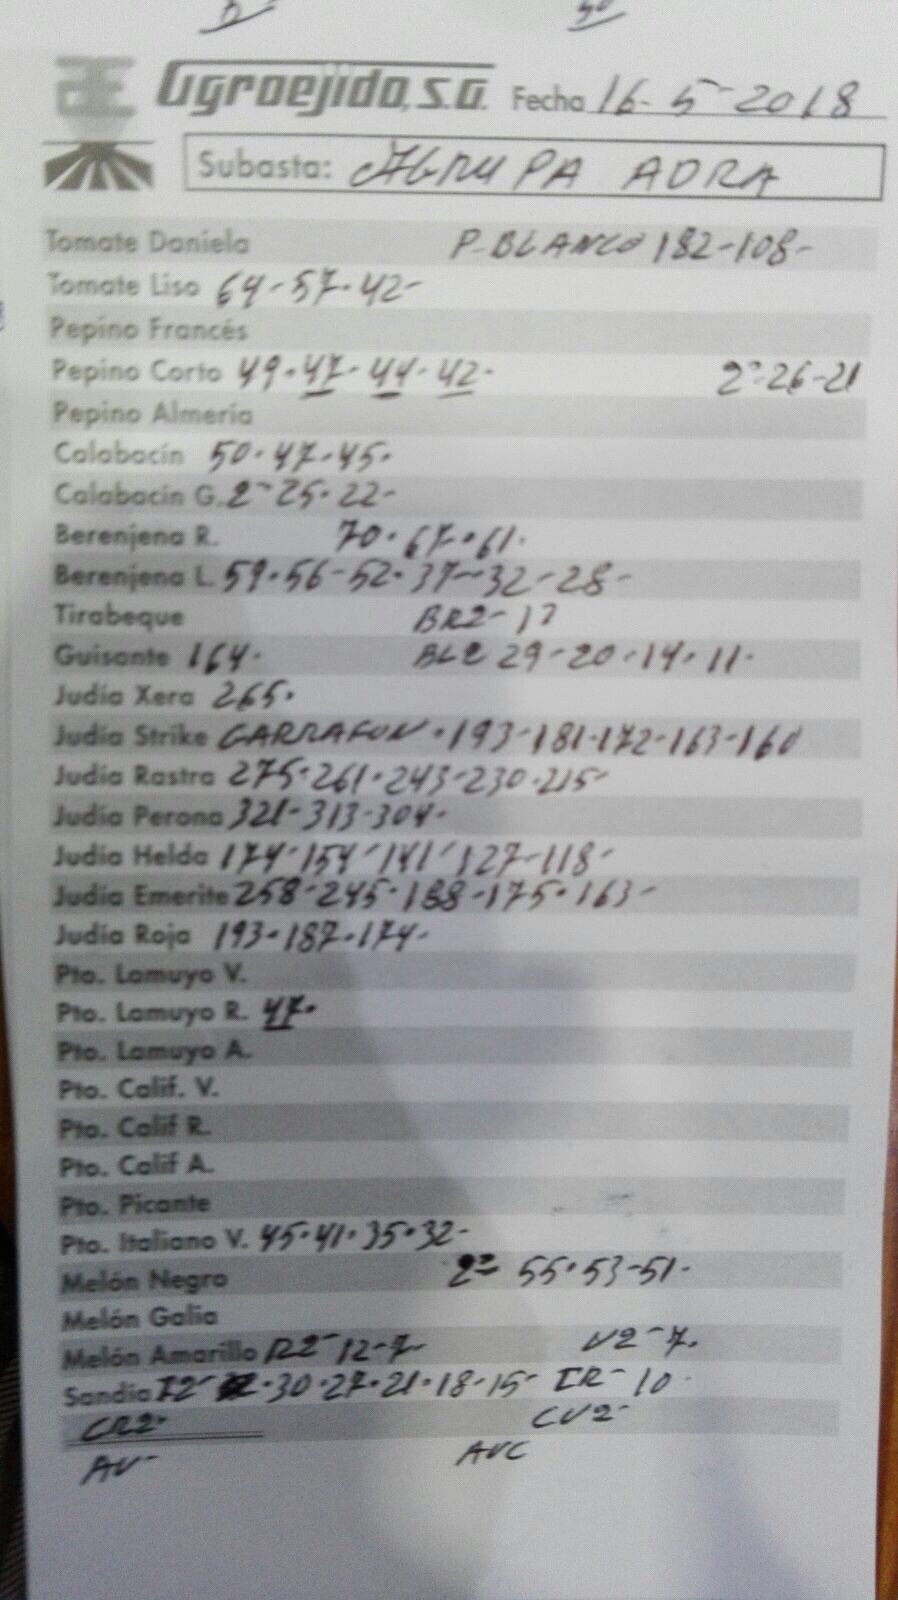 Agroejido, S.A. Fecha 16-5-2018
Subasta: AGRUPA ADRA
Tomate Daniela P.BLANCO 182-108-
Tomate Liso 64-57-42-
Pepino Francés
Pepino Corto 49-47-44-42- 2ª-26-21
Pepino Almería
Calabacín 50-47-45-
Calabacín G. 2-25-22-
Berenjena R. 70-67-61-
Berenjena L. 59-56-52-37-32-28-
Tirabeque BR2-
Guisante 164- BL2 29-20-14-11-
Judía Xera 265-
Judía Strike GARRAFON-193-181-172-163-160
Judía Rastra 275-261-243-230-215-
Judía Perona 321-313-304-
Judía Helda 174-154-141-127-118-
Judía Emerite 258-245-188-175-163-
Judía Roja 193-187-174-
Pto. Lamuyo V.
Pto. Lamuyo R. 47-
Pto. Lamuyo A.
Pto. Calif. V.
Pto. Calif R.
Pto. Calif A.
Pto. Picante
Pto. Italiano V. 45-41-35-32-
Melón Negro 2ª 55-53-51-
Melón Galia
Melón Amarillo R2-12-7- V2-7-
Sandía 30-27-21-18-15- 10-
CR2- CV2-
AV- AVC